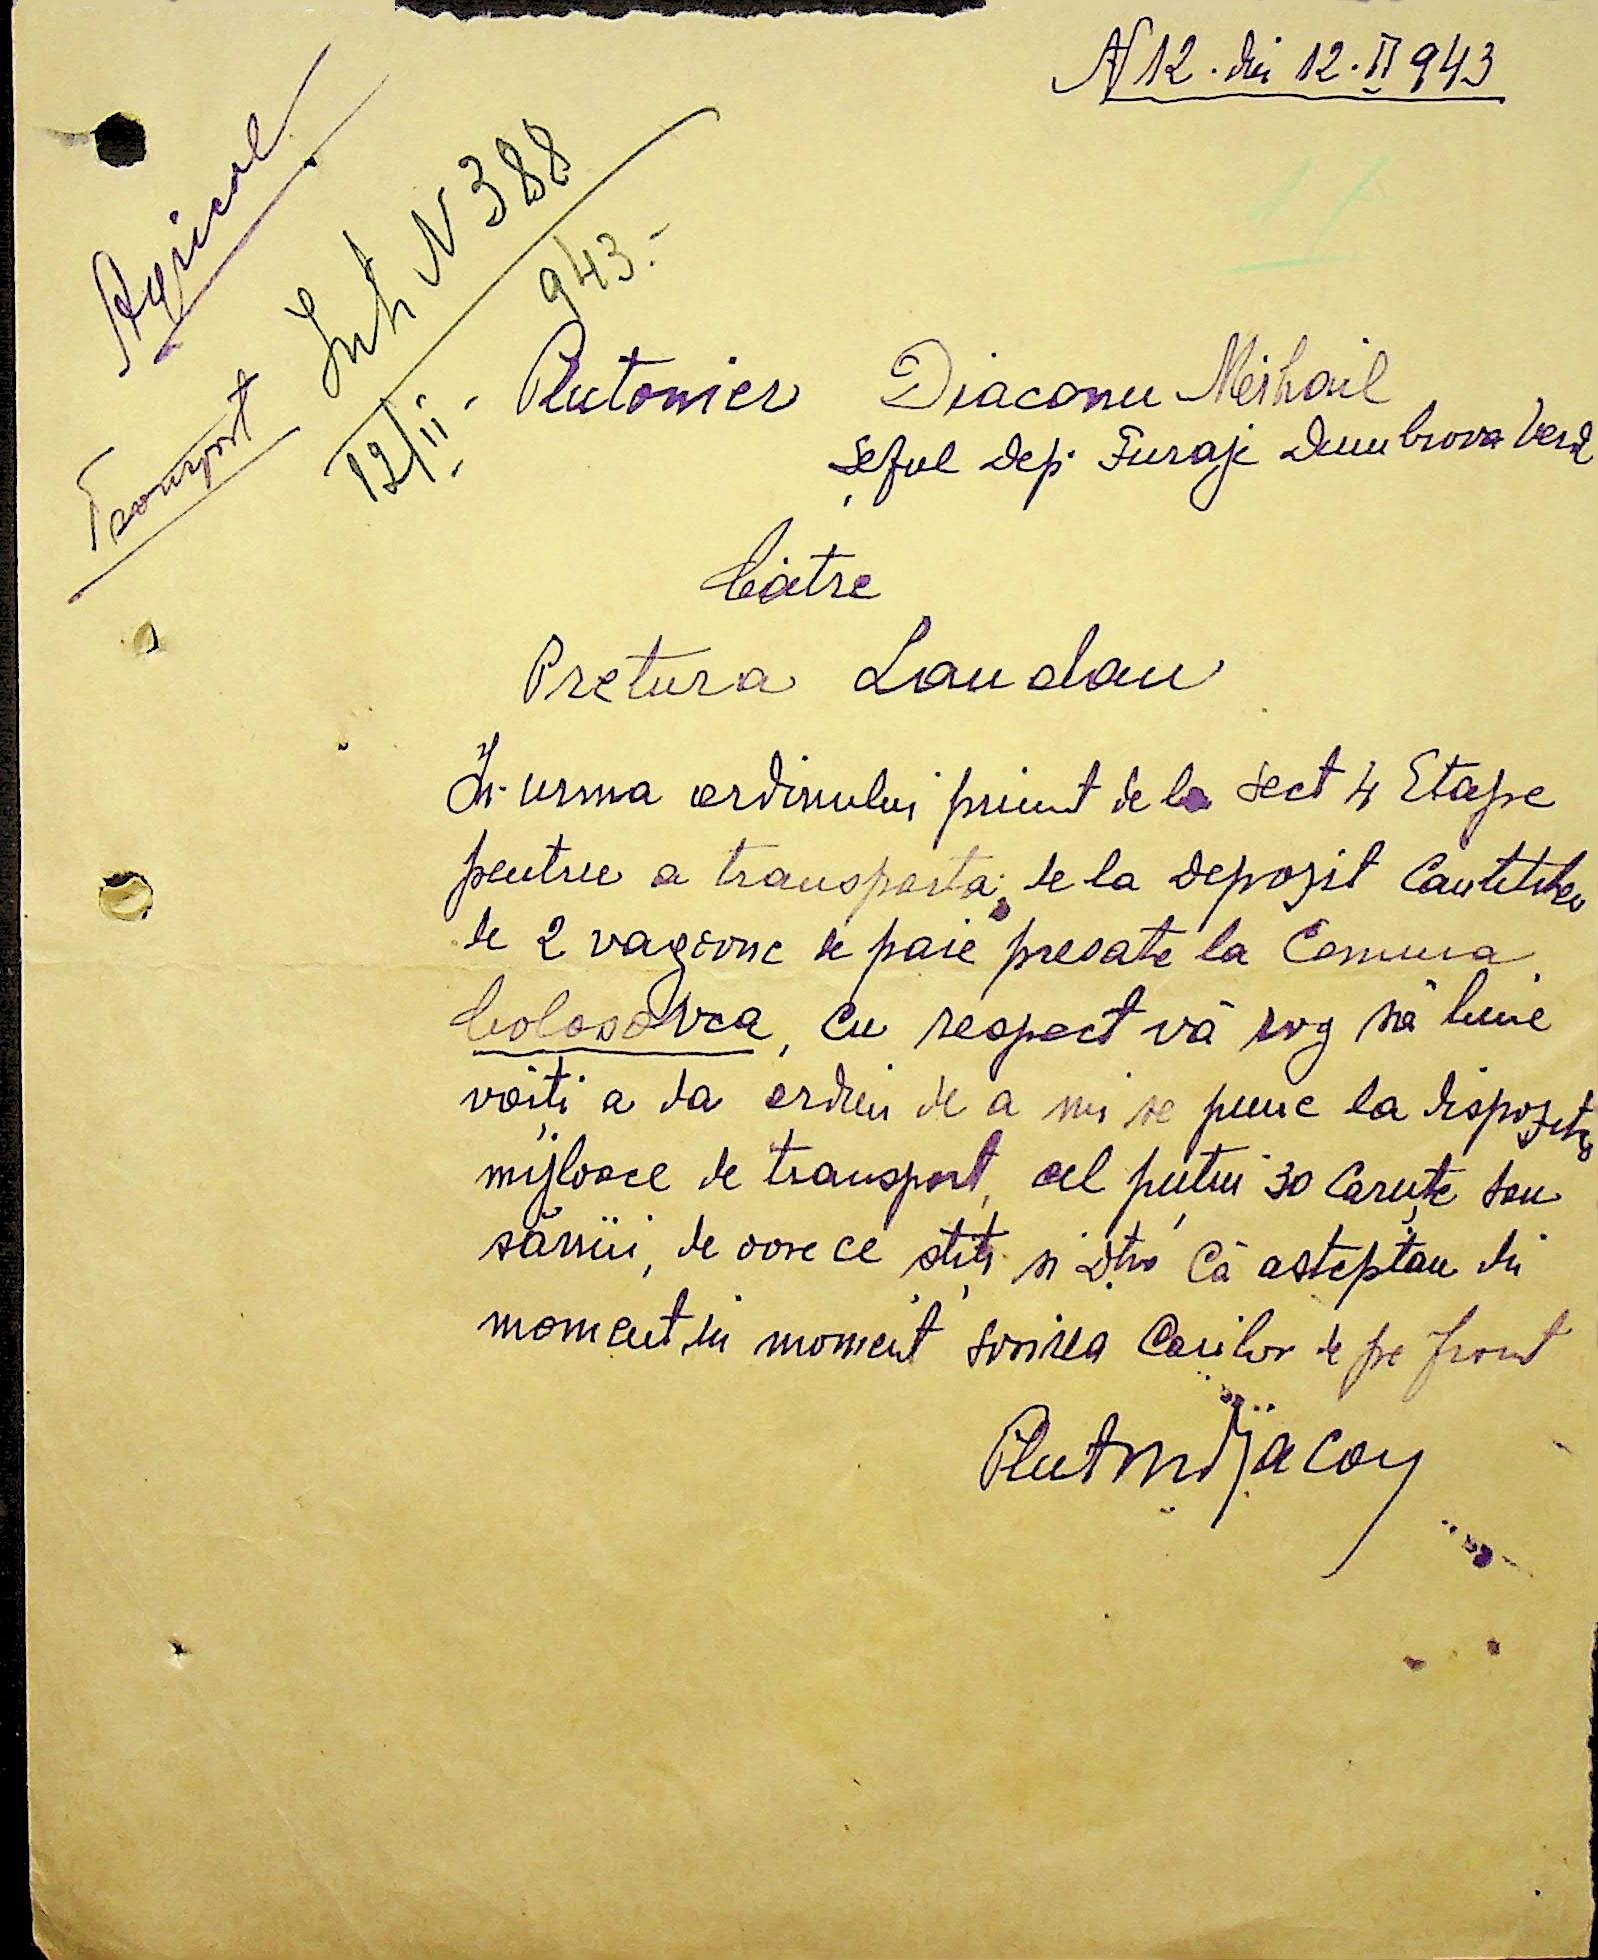 N 12. din 12. II 943
Agricol
Transport
Int N 388
12/II 943.-
Plutonier Diaconu Mihail
Șeful dep. Furaje Dumbrova Verde
Către
Pretura Landau
În urma ordinului primit de la Sect 4 Etape
pentru a transporta de la depozit Cantitatea
de 2 vagoane de paie presate la Comuna
Colosovca, cu respect vă rog să bine
voiți a da ordin de a mi se pune la dispoziție
mijloace de transport, cel puțin 30 Caruțe sau
sănii, de oare ce știți si Dtră Că asteptăm din
moment în moment sosirea Cailor de pe front
Plut M Diacon